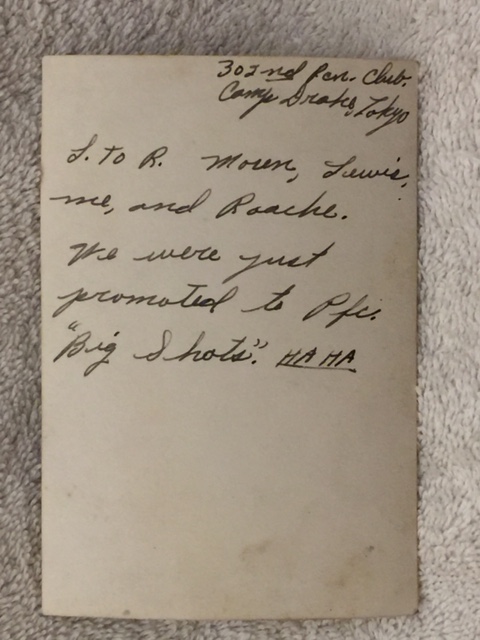 302nd Ren. Club.
Camp Drake, Tokyo
L. to R. Moren, Lewis,
me, and Roache.
We were just
promoted to Pfc.
"Big Shots". HA HA